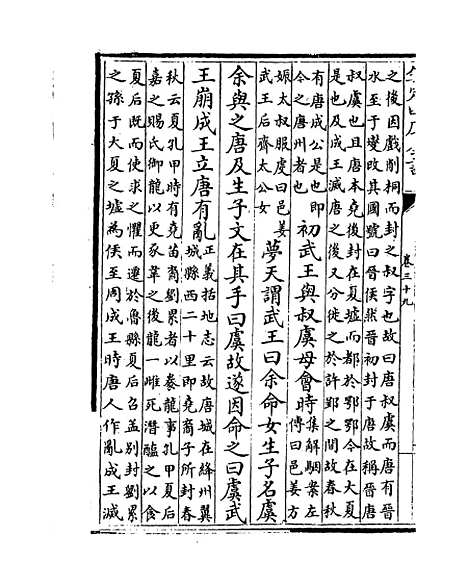 欽定四庫全書
卷三十九
之後因戲削桐而封之叔字也故曰唐叔虞而唐有晉
水至于燮改其國號曰晉侯然晉初封于唐故稱晉唐
叔虞也且唐本堯後封在夏墟而都於鄂鄂今在大夏
是也及成王滅唐之後又分徙之於許郢之間故春秋
有唐成公是也即
今之唐州者也
初武王與叔虞母會時
集解駰案左
傳曰邑姜方
娠太叔服虔曰邑姜
武王后齊太公女
夢天謂武王曰余命女生子名虞
余與之唐及生子文在其手曰虞故遂因命之曰虞武
王崩成王立唐有亂
正義括地志云故唐城在絳州翼
城縣西二十里即堯裔子所封春
秋云夏孔甲時有堯苗裔劉累者以豢龍事孔甲夏后
嘉之賜氏御龍以更豕韋之後龍一雌死潛醢之以食
夏后既而使求之懼而遷於魯縣夏后召蓋別封劉累
之孫于大夏之墟為侯至周成王時唐人作亂成王滅